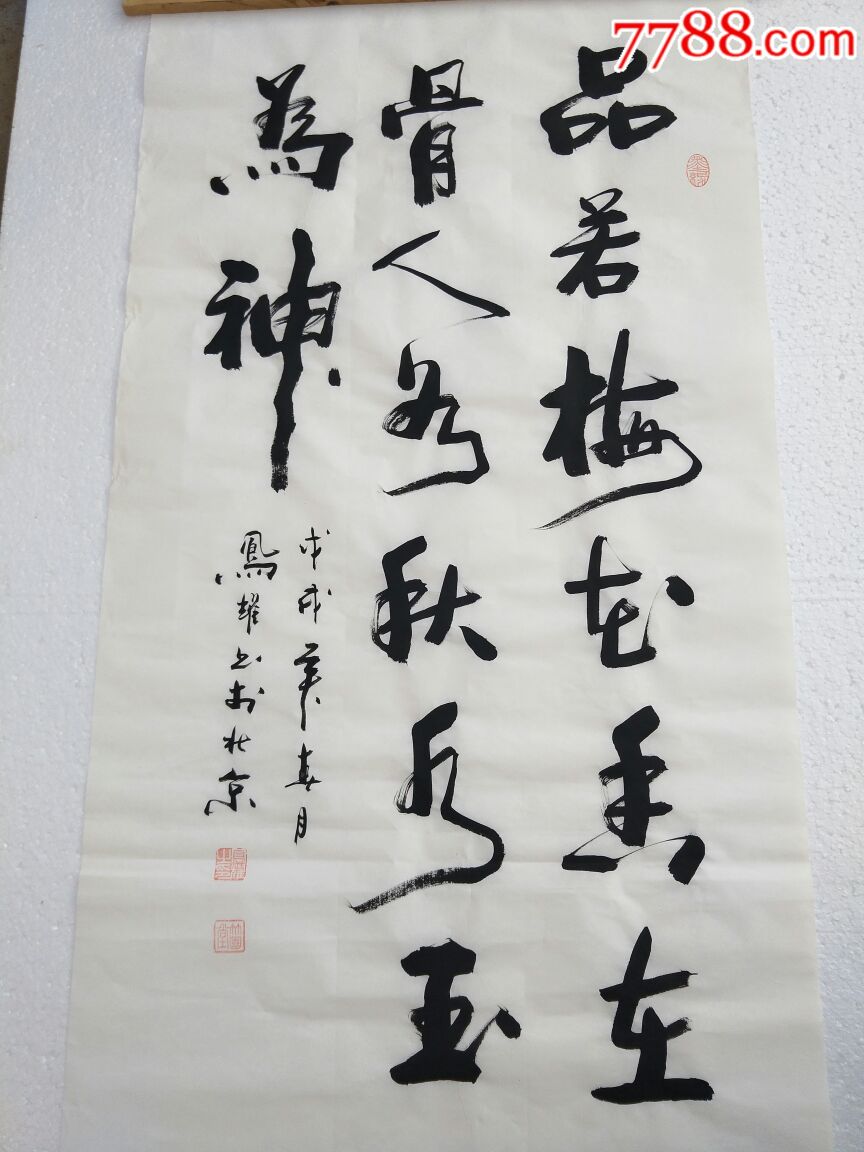 7788.com
品若梅花香在
骨人如秋水玉
為神
戊戌年春月
鳳耀书於北京